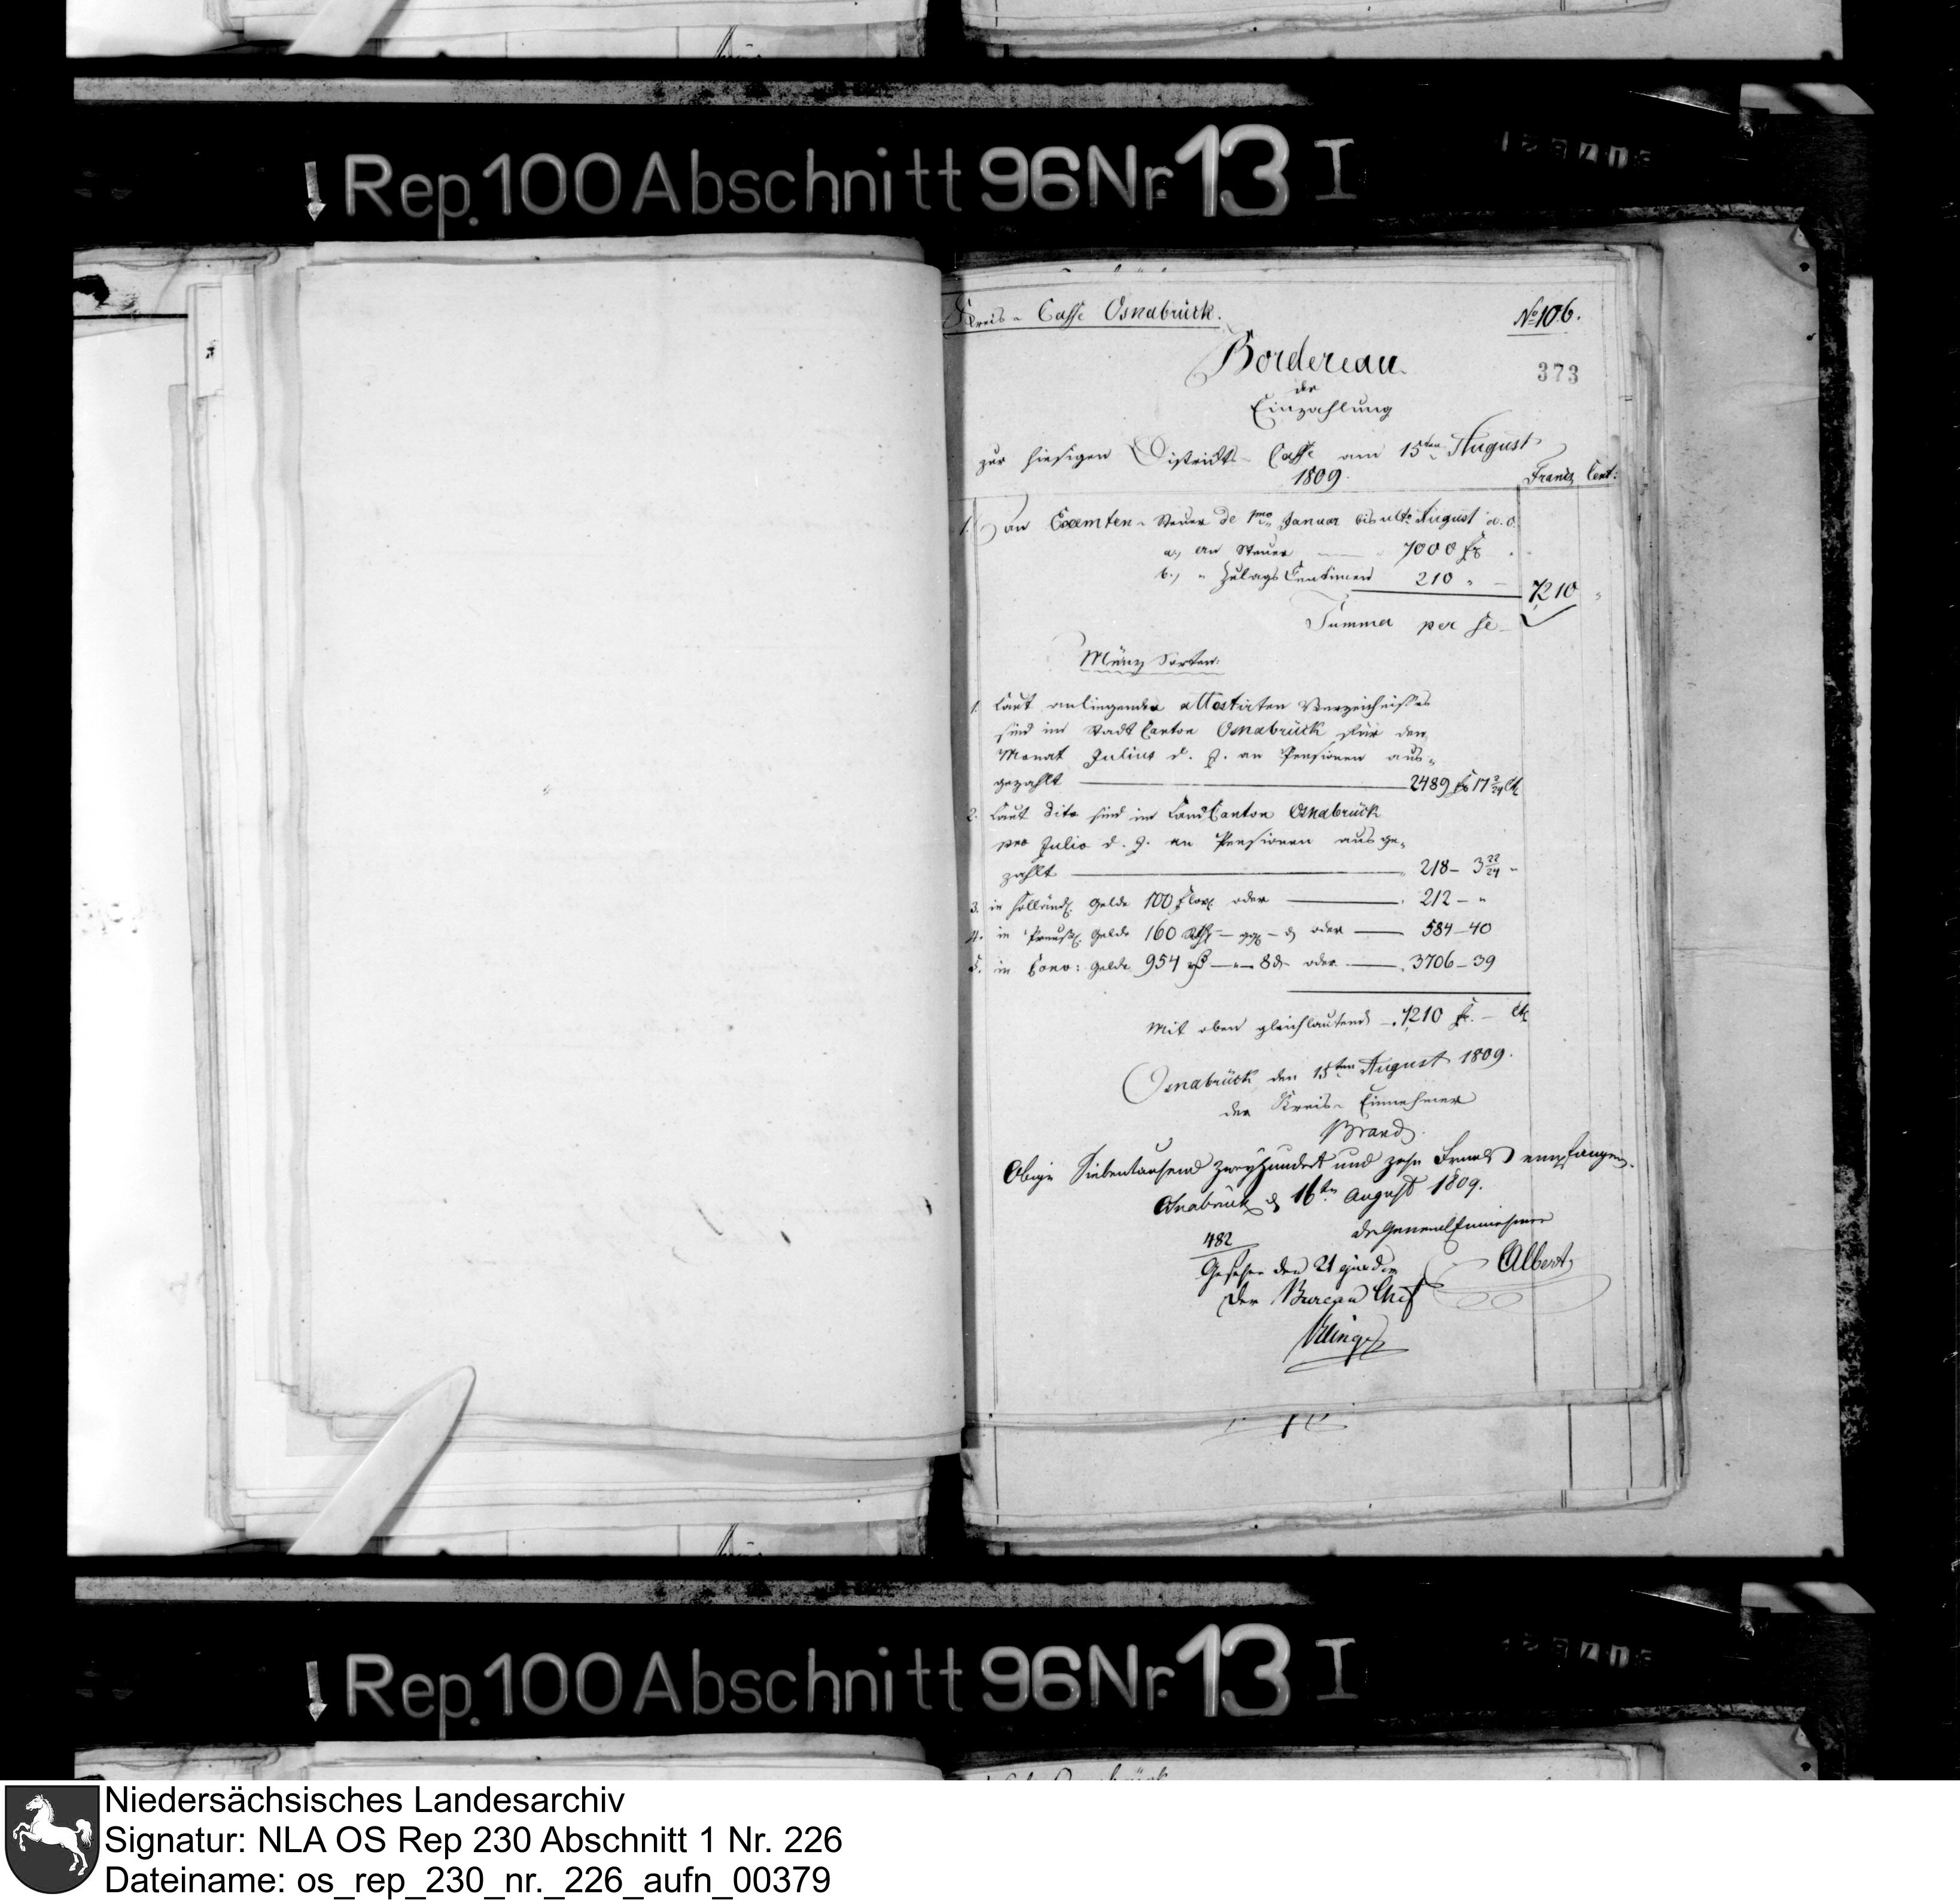 Rep. 100 Abschnitt 96 Nr. 13 I
Kreis-Casse Osnabrück.
No 106.
Bordereau
373
der
Einzahlung
zur hiesigen Districts-Casse am 15ten August
1809.
Francs Cent:
1. an Exemten-Steuer de 1mo Januar bis ult: August a. c.
a., an Steuer — 7000 fr
b., " Zulags Centimen 210 " —
7210 "
Summa per se
Münz Sorten:
1. Laut anliegenden attestirten Verzeichnisses
sind im Stadt Canton Osnabrück für den
Monat Julius d. J. an Pensionen aus-
gezahlt — 2489 fr 17 2/24 Ct
2. Laut dito sind im Land Canton Osnabrück
pro Julio d. J. an Pensionen ausge-
zahlt — 218 — 3 22/24 "
3. in Holländ. Gelde 100 Flor. oder — 212 — "
4. in Preuß. Gelde 160 Rth — ggr — d oder — 584 — 40
5. in Conv: Gelde 954 — " — 8 d oder — 3706 — 39
Mit oben gleichlautend — 7210 fr. — Ct
Osnabrück den 15ten August 1809.
der Kreis-Einnehmer
Brand
Obige Siebentausend zweyhundert und zehn Francs empfangen.
Osnabrück d 16ten August 1809.
482
der General Einnehmer
Gesehen den 21
Albert
Der Bureau Chef
Rep. 100 Abschnitt 96 Nr. 13 I
Niedersächsisches Landesarchiv
Signatur: NLA OS Rep 230 Abschnitt 1 Nr. 226
Dateiname: os_rep_230_nr._226_aufn_00379